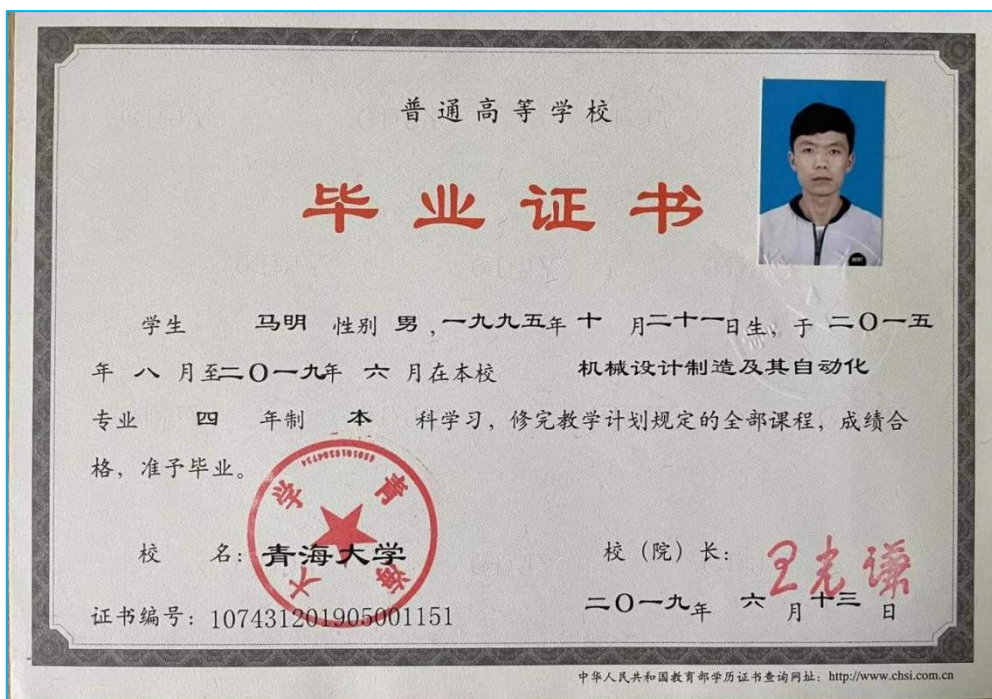 普通高等学校
毕业证书
学生 马明 性别 男，一九九五年 十 月二十一日生，于 二〇一五
年 八 月至二〇一九年 六 月在本校 机械设计制造及其自动化
专业 四 年制 本 科学习，修完教学计划规定的全部课程，成绩合
格，准予毕业。
青海大学
校 名：青海大学
校（院）长：王光谦
证书编号：107431201905001151
二〇一九年 六 月十三日
中华人民共和国教育部学历证书查询网址：http://www.chsi.com.cn